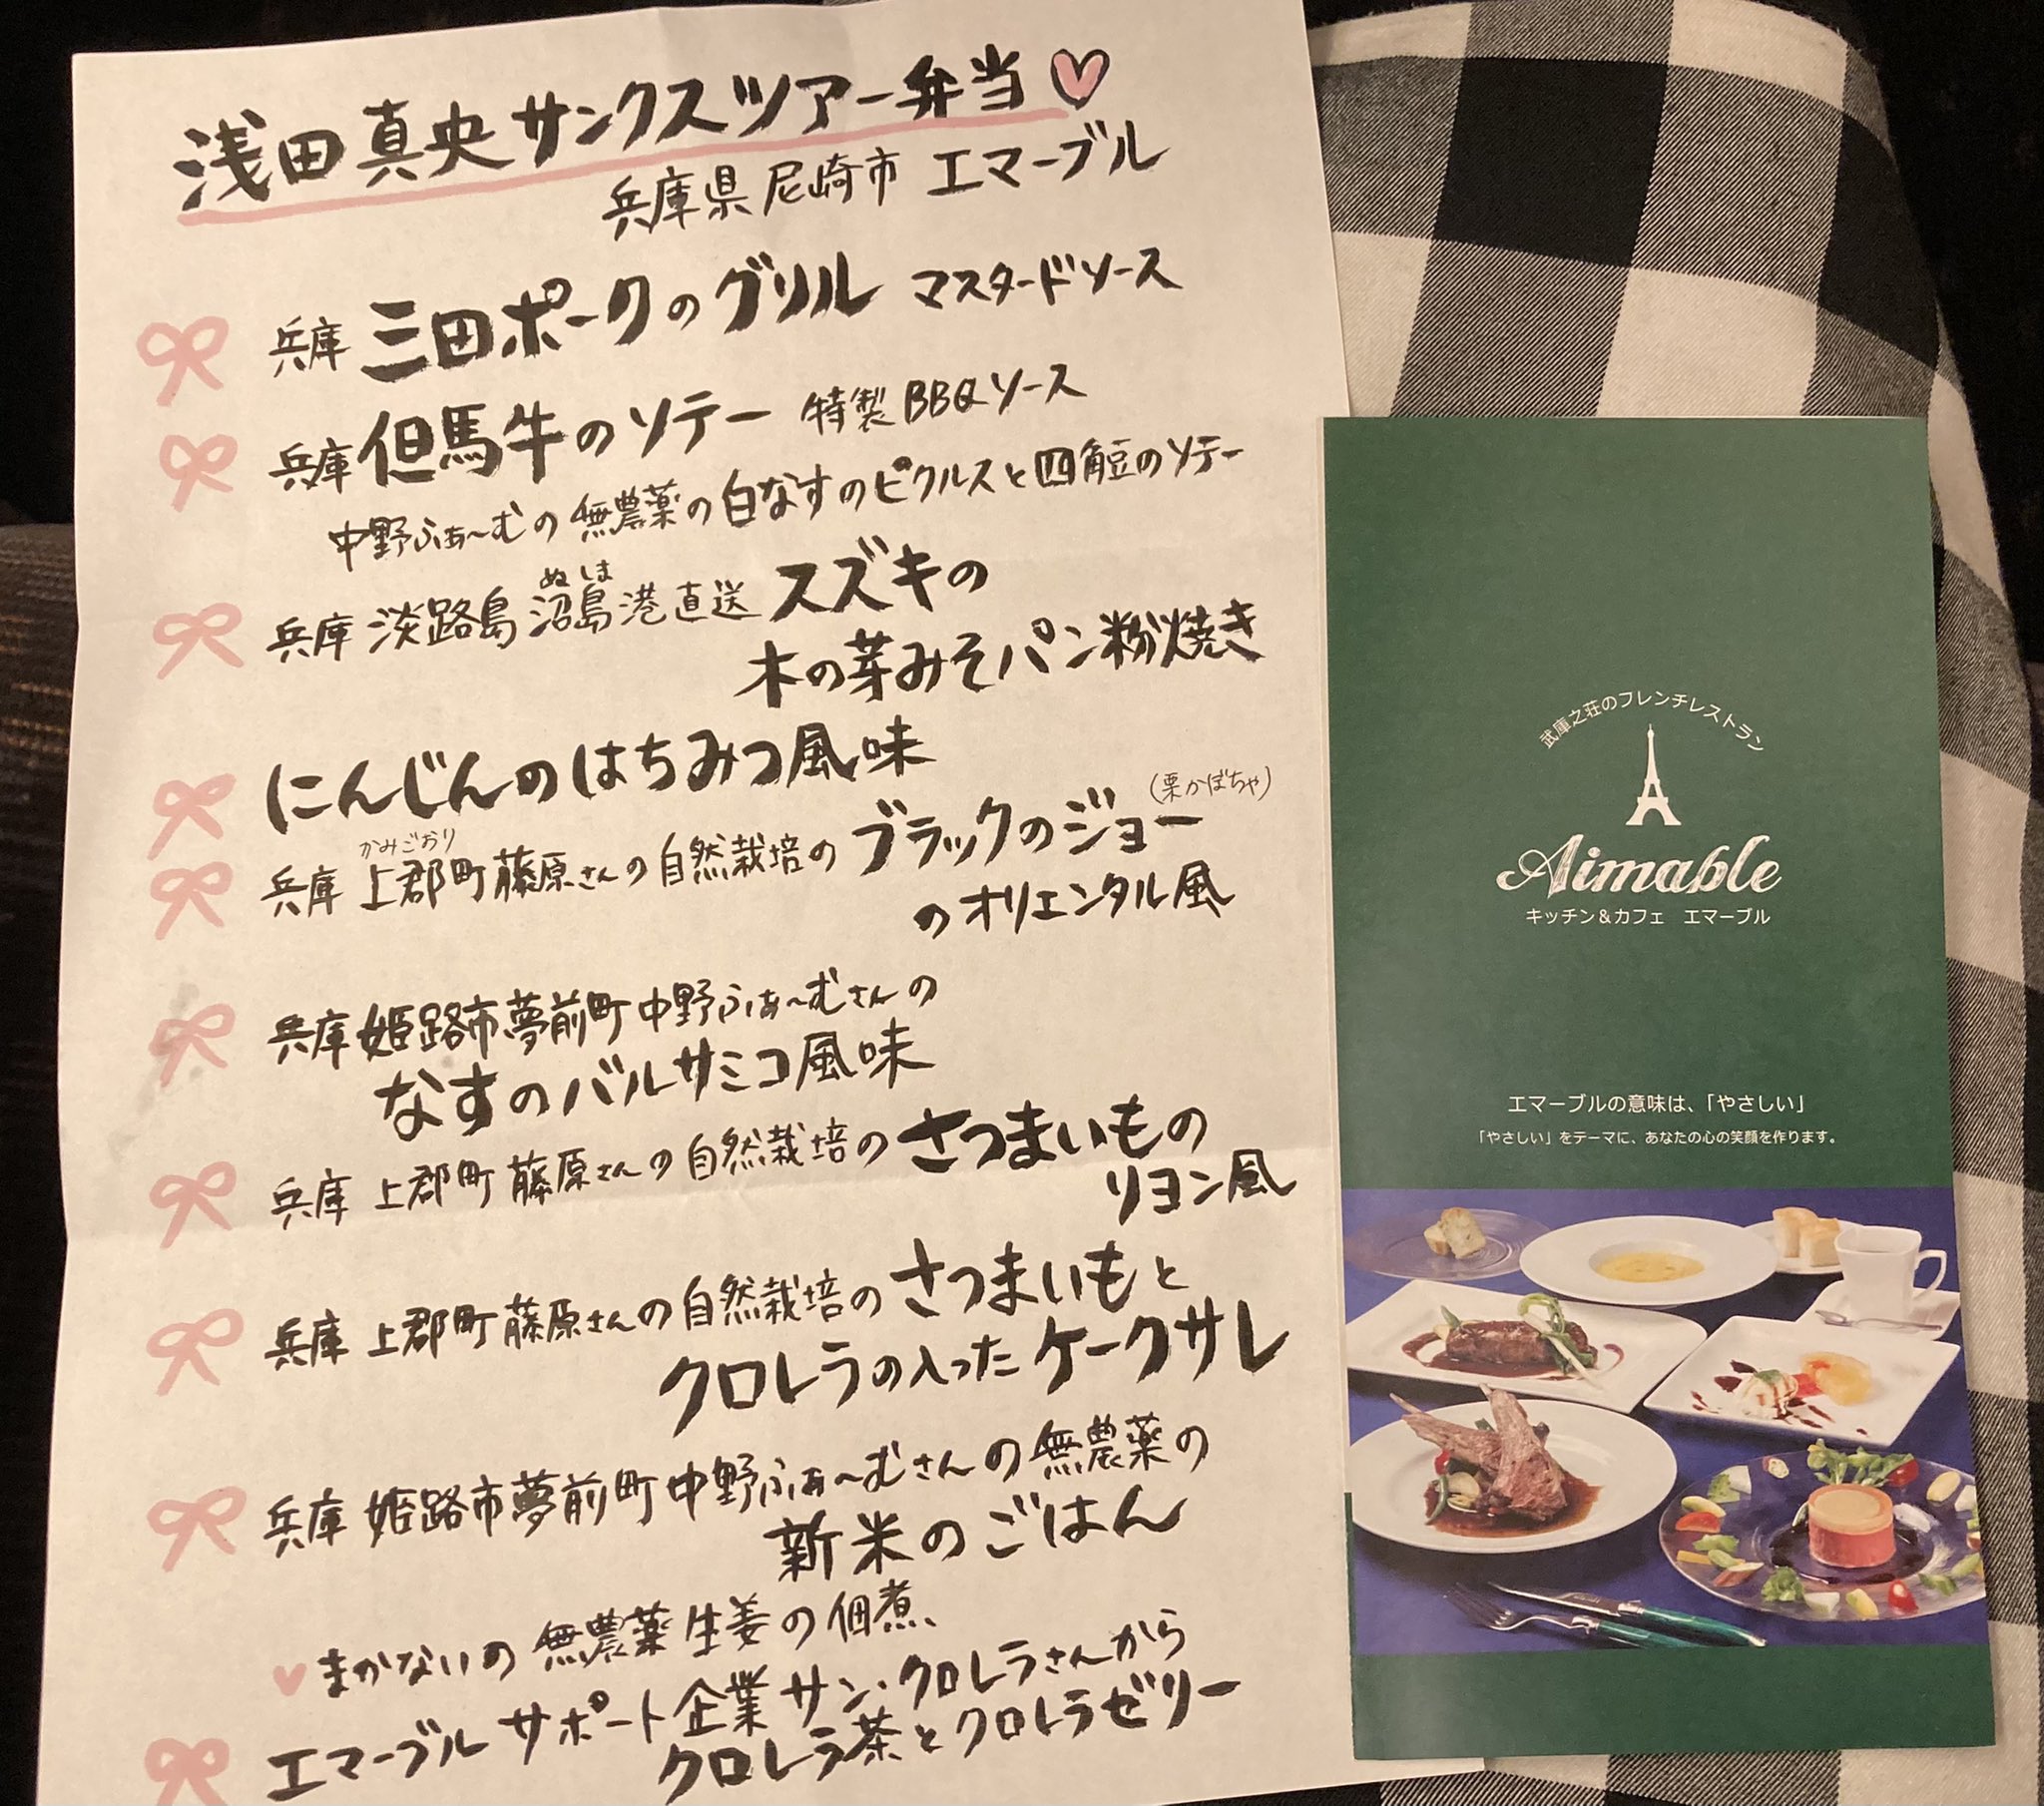 浅田真央サンクスツアー弁当
兵庫県尼崎市 エマーブル
兵庫 三田ポークのグリル マスタードソース
兵庫 但馬牛のソテー 特製BBQソース
中野ふぁ〜むの無農薬の白なすのピクルスと四角豆のソテー
ぬしま
兵庫 淡路島 沼島港直送 スズキの
木の芽みそパン粉焼き
にんじんのはちみつ風味
(栗かぼちゃ)
かみごおり
兵庫 上郡町藤原さんの自然栽培の ブラックのジョー
のオリエンタル風
兵庫 姫路市夢前町中野ふぁ〜むさんの
なすのバルサミコ風味
兵庫 上郡町藤原さんの自然栽培の さつまいもの
リヨン風
兵庫 上郡町藤原さんの自然栽培の さつまいもと
クロレラの入った ケークサレ
兵庫 姫路市夢前町中野ふぁ〜むさんの無農薬の
新米のごはん
まかないの無農薬生姜の佃煮、
エマーブル サポート企業 サン・クロレラさんから
クロレラ茶とクロレラゼリー
武庫之荘のフレンチレストラン
Aimable
キッチン&カフェ エマーブル
エマーブルの意味は、「やさしい」
「やさしい」をテーマに、あなたの心の笑顔を作ります。